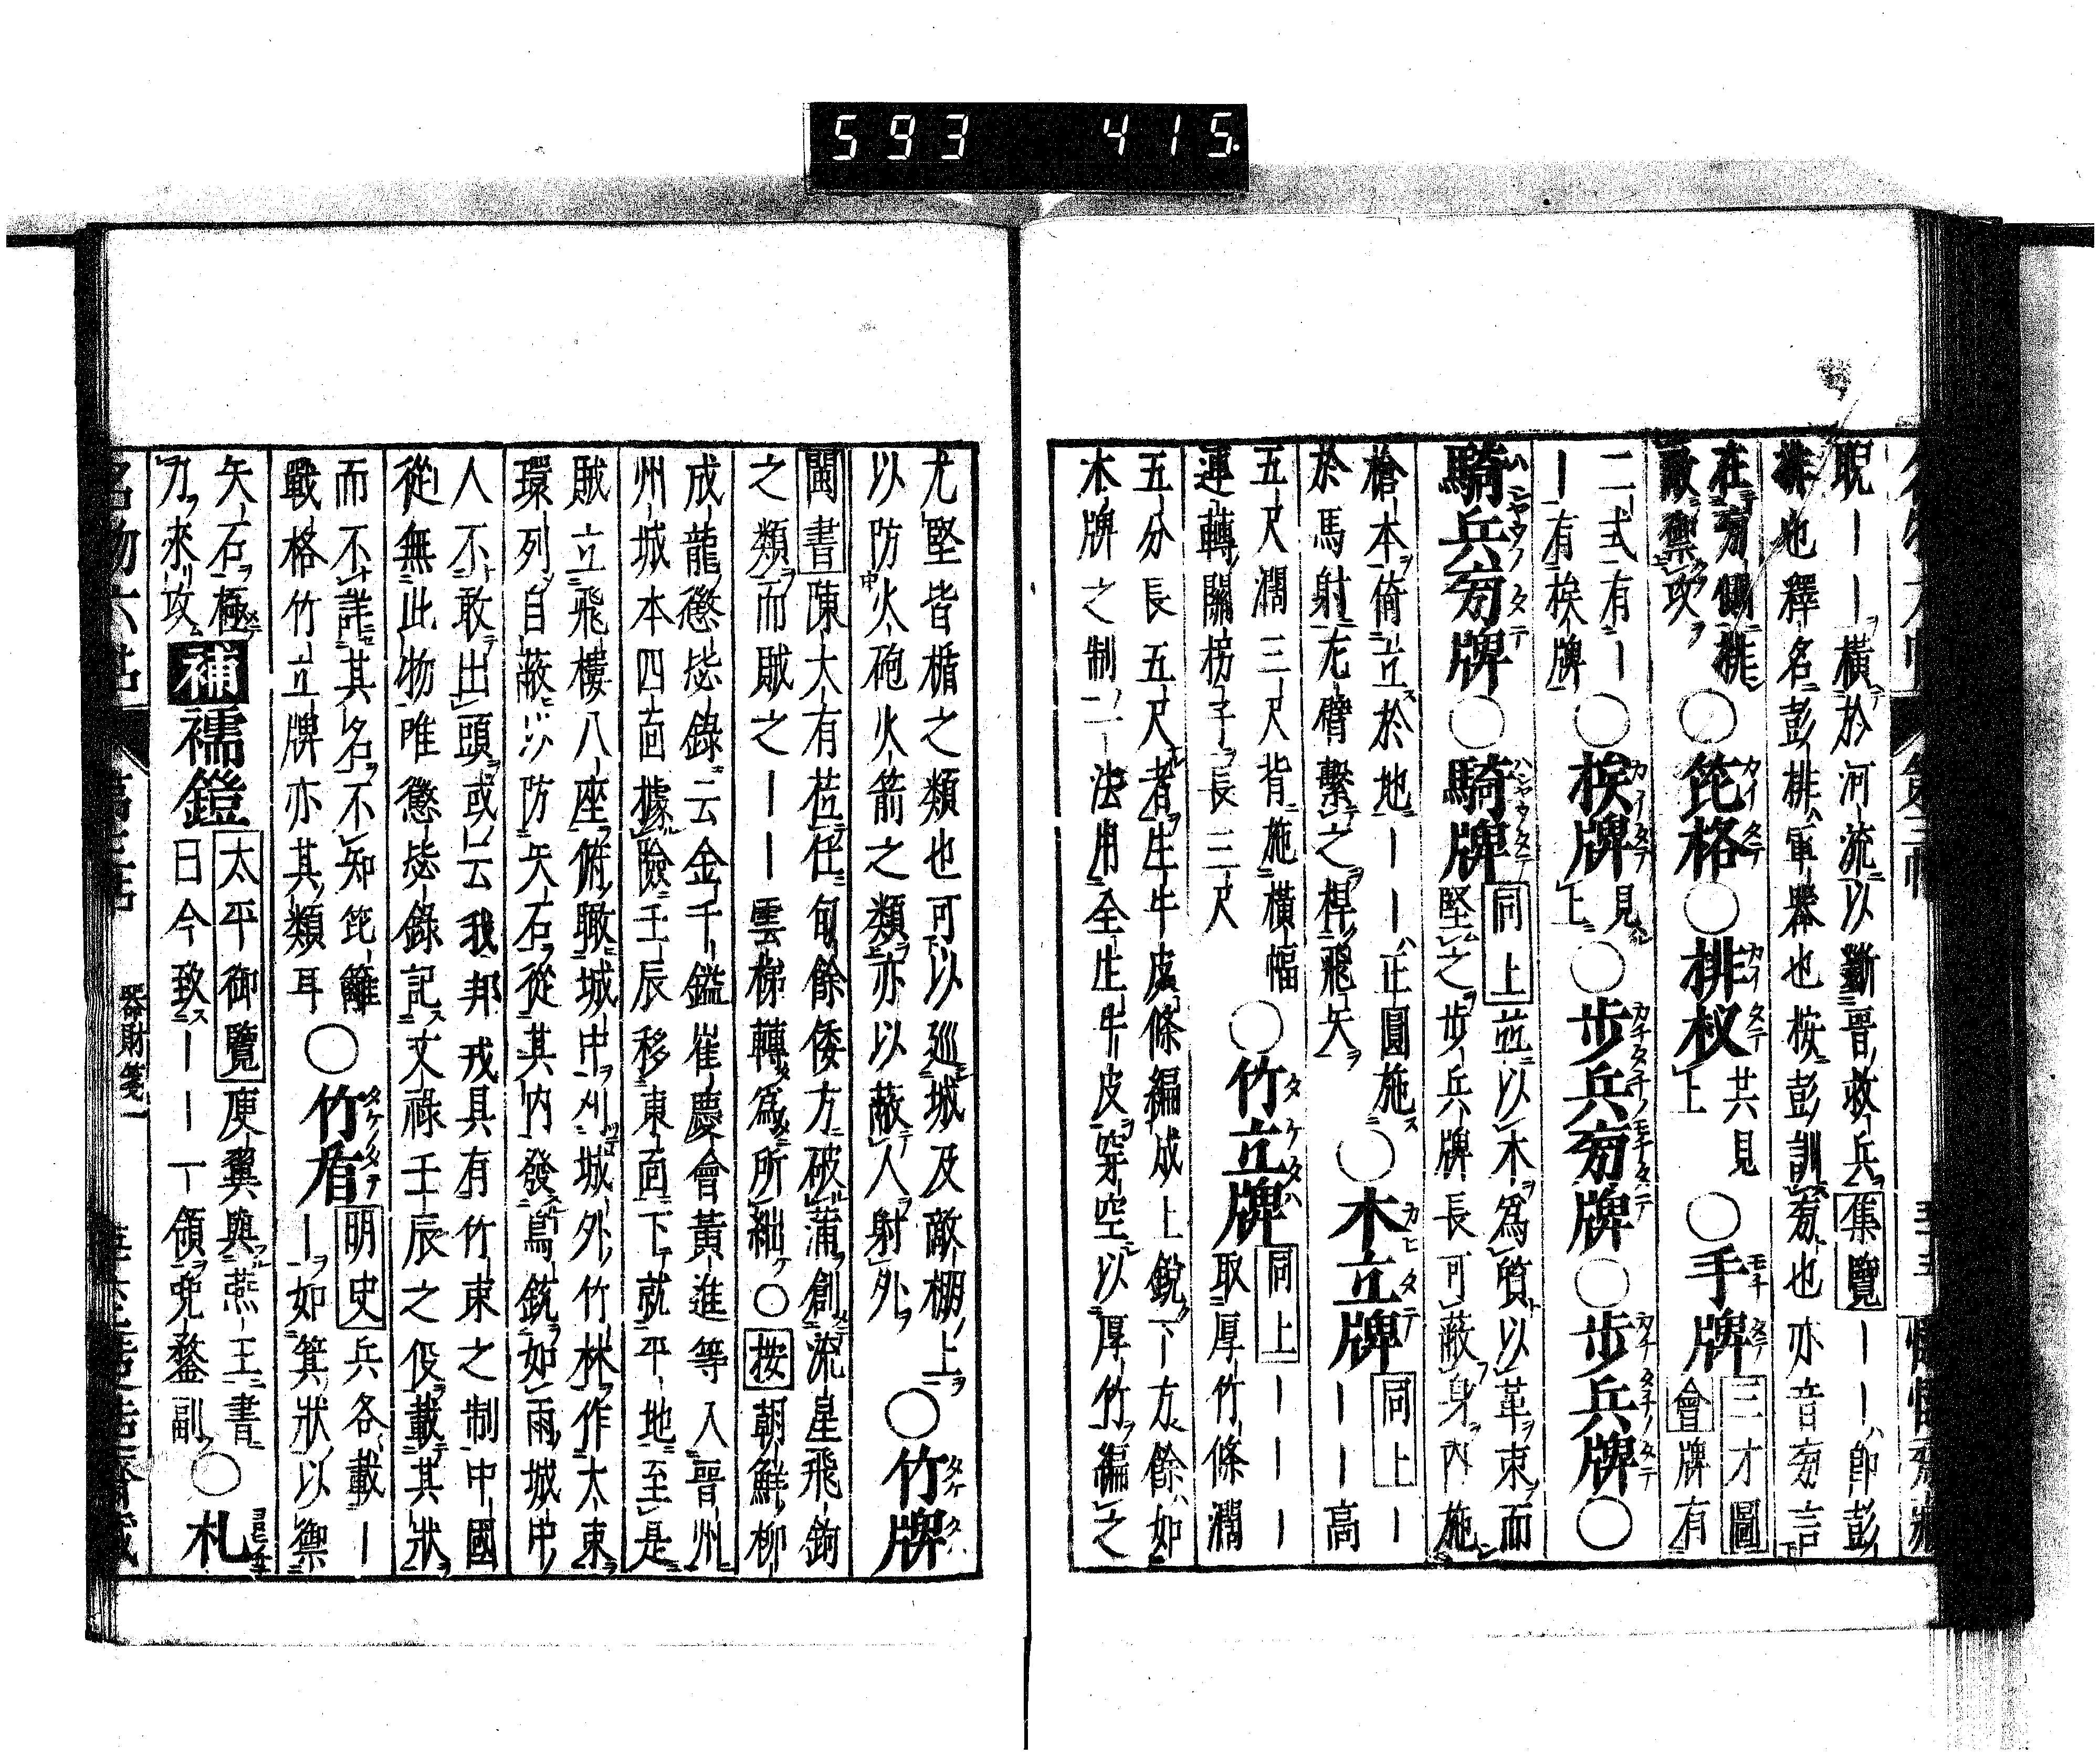 593 415
睨｜｜橫於河流以斷晉救兵集覽｜｜即彭
排也釋名彭排軍器也按彭訓旁也亦音旁言
在旁側排
敵禦攻
○笓格○排杈
共見
上
○手牌
三才圖
會牌有
二式有｜
｜有挨牌
○挨牌
見
上
○步兵旁牌○步兵牌○
騎兵旁牌○騎牌
同上並以木爲質以革束而
堅之步兵牌長可蔽身內施
槍本倚立於地｜｜正圓施
於馬射左臂繫之捍飛矢
○木立牌
同上｜
｜｜高
五尺濶三尺背施橫幅
連轉關拐子長三尺
○竹立牌
同上｜｜｜
取厚竹條濶
五分長五尺者生牛皮條編成上銳下方餘如
木牌之制一法用全生牛皮穿空以厚竹編之
尤堅皆楯之類也可以巡城及敵棚上
以防火砲火箭之類亦以蔽人射外
○竹牌
閩書陳大有莅任旬餘倭方破蒲創流星飛鉤
之類而賊之｜｜雲梯轉爲所絀○按朝鮮柳
成龍懲毖錄云金千鎰崔慶會黃進等入晉州
州城本四面據險壬辰移東面下就平地至是
賊立飛樓八座俯瞰城中刈城外竹林作大束
環列自蔽以防矢石從其內發鳥銃如雨城中
人不敢出頭或云我邦戎具有竹束之制中國
從無此物唯懲毖錄記文祿壬辰之役載其狀
而不詳其名不知笓籬
戰格竹立牌亦其類耳
○竹盾
明史兵各載｜
｜如箕狀以禦
矢石極
力來攻
補襦鎧
太平御覽庾翼與燕王書
曰今致｜｜一領兜鍪副
○札
器財箋一